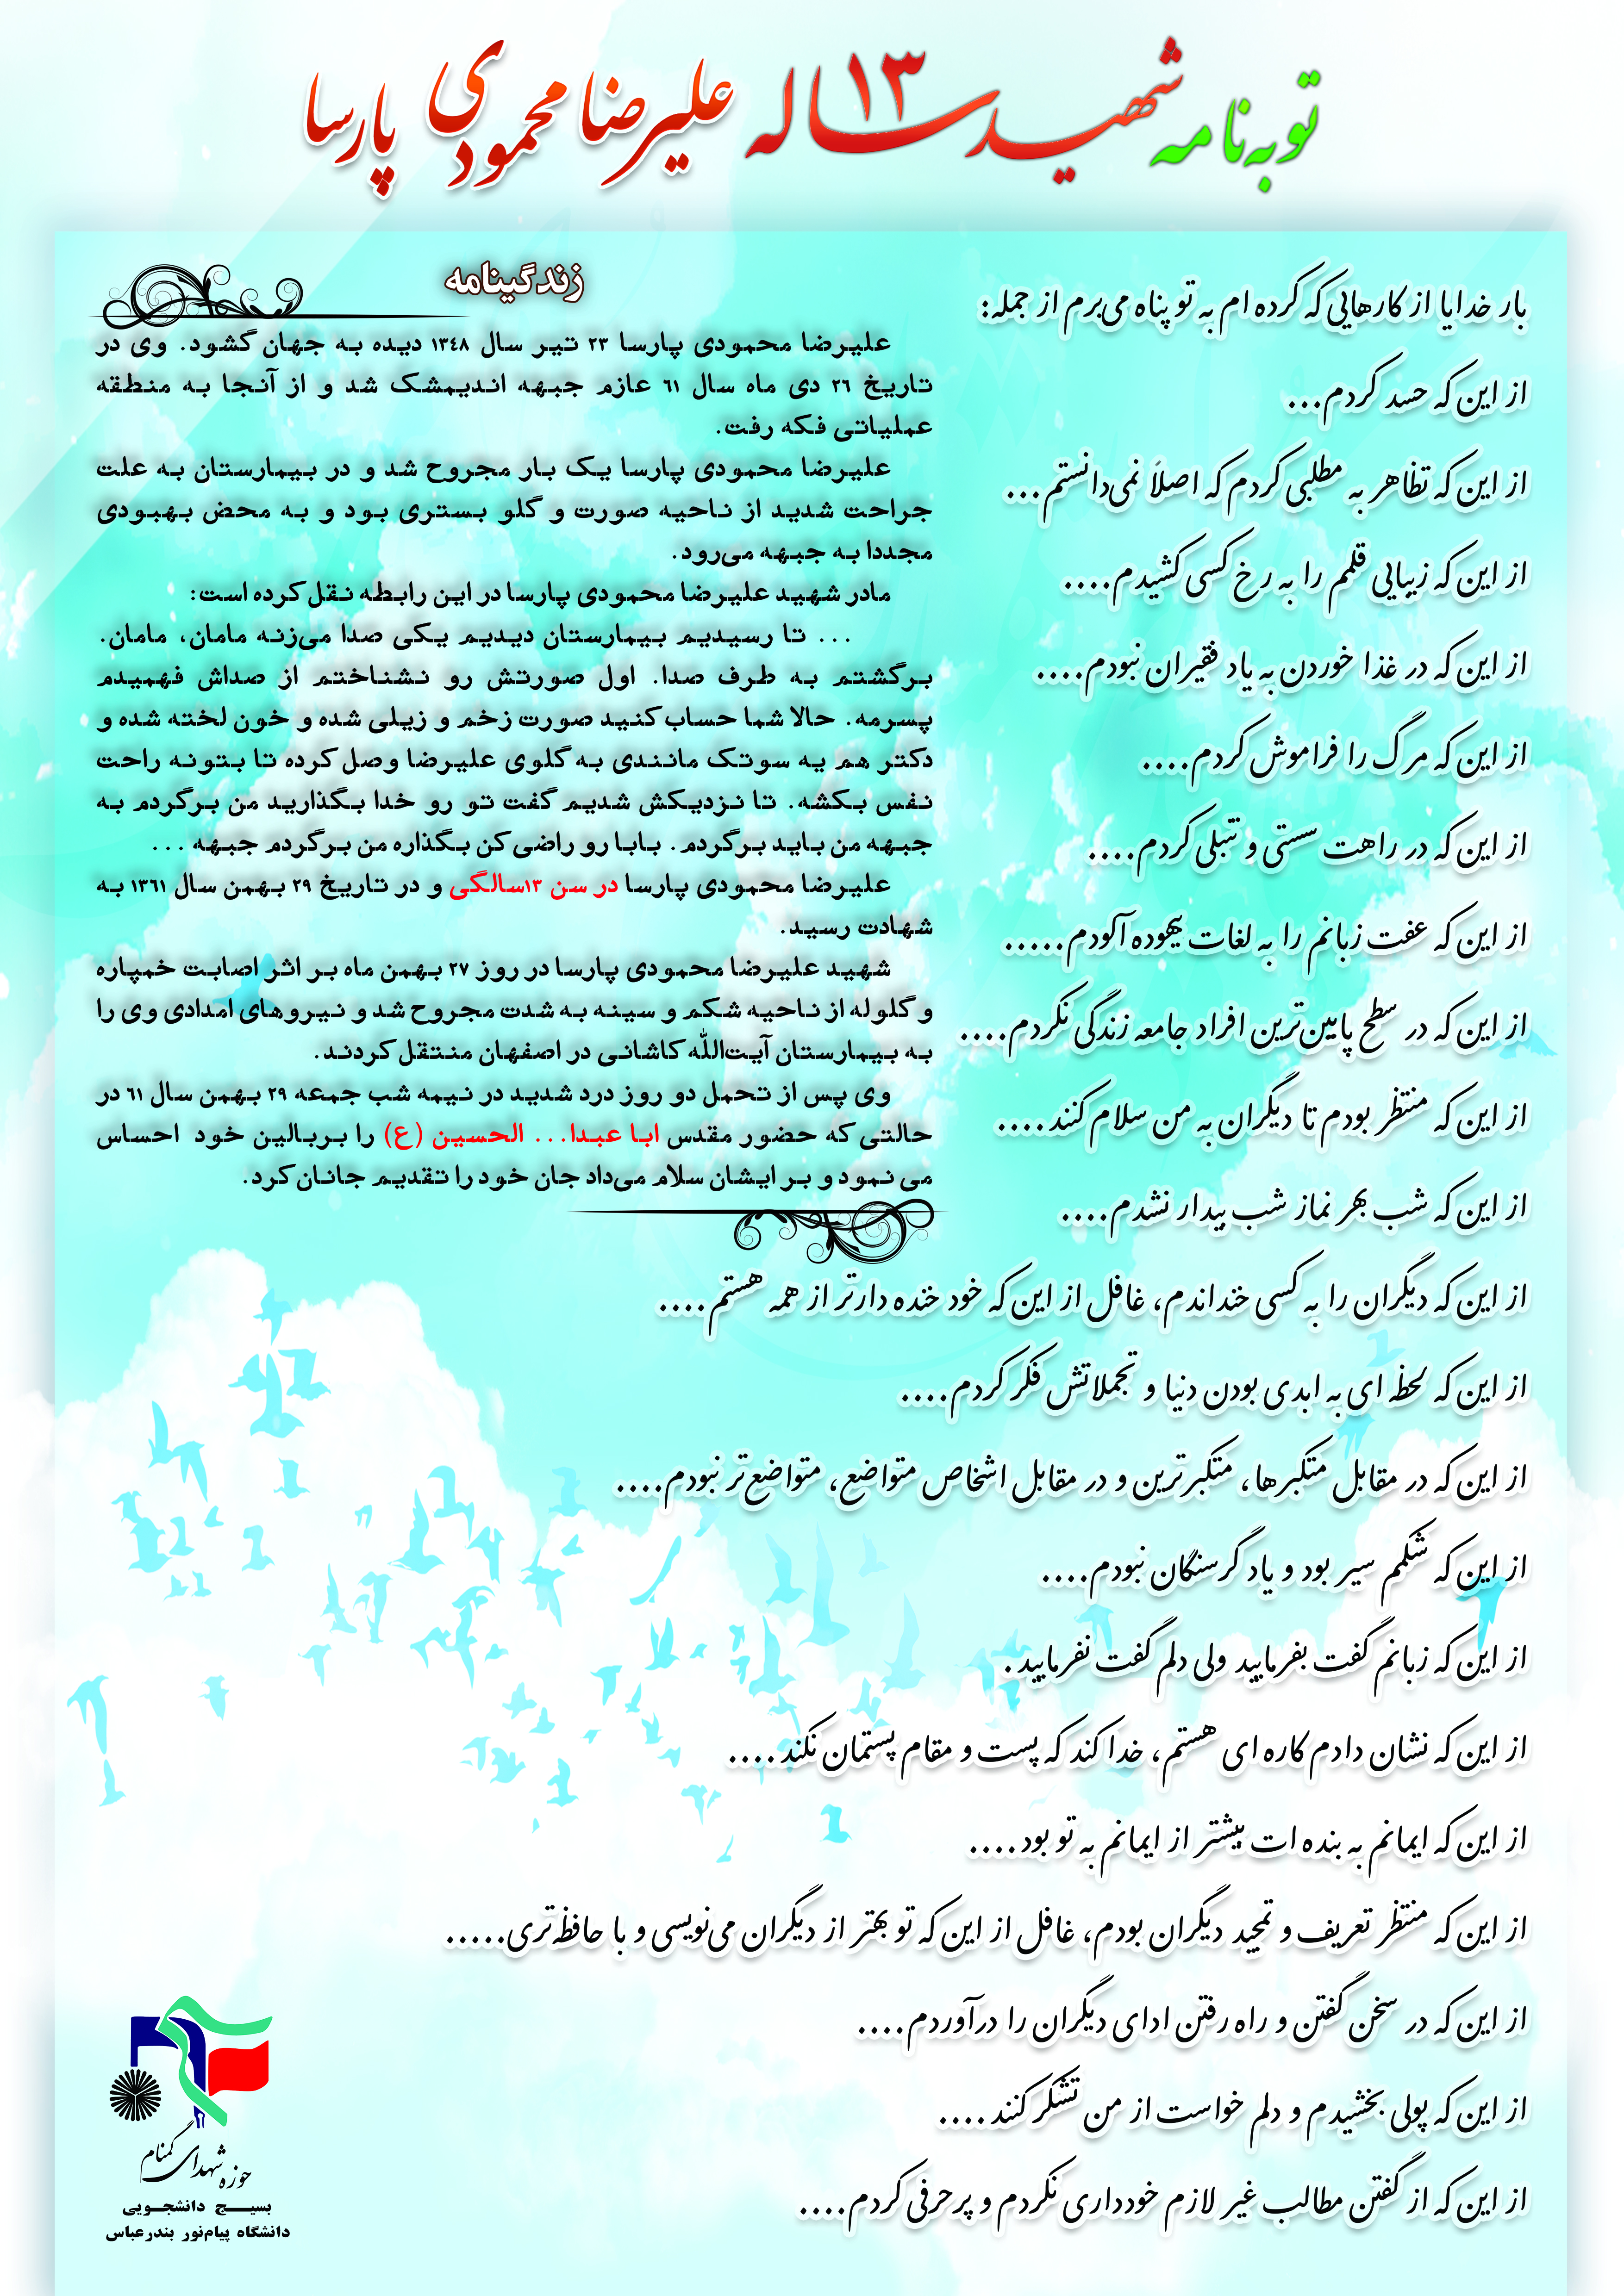 توبه‌نامه شهید ۱۳ ساله علیرضا محمودی پارسا
بار خدایا از کارهایی که کرده ام به تو پناه می‌برم از جمله:
از این که حسد کردم...
از این که تظاهر به مطلبی کردم که اصلاً نمی‌دانستم...
از این که زیبایی قلمم را به رخ کسی کشیدم....
از این که در غذا خوردن به یاد فقیران نبودم....
از این که مرگ را فراموش کردم....
از این که در راهت سستی و تنبلی کردم....
از این که عفت زبانم را به لغات بیهوده آلودم.....
از این که در سطح پایین‌ترین افراد جامعه زندگی نکردم....
از این که منتظر بودم تا دیگران به من سلام کنند....
از این که شب بهر نماز شب بیدار نشدم....
از این که دیگران را به کسی خنداندم، غافل از این که خود خنده دارتر از همه هستم....
از این که لحظه ای به ابدی بودن دنیا و تجملاتش فکر کردم....
از این که در مقابل متکبرها، متکبرترین و در مقابل اشخاص متواضع، متواضع‌تر نبودم....
از این که شکمم سیر بود و یاد گرسنگان نبودم....
از این که زبانم گفت بفرمایید ولی دلم گفت نفرمایید.
از این که نشان دادم کاره ای هستم، خدا کند که پست و مقام پستمان نکند....
از این که ایمانم به بنده ات بیشتر از ایمانم به تو بود....
از این که منتظر تعریف و تمجید دیگران بودم، غافل از این که تو بهتر از دیگران می‌نویسی و با حافظه‌تری.....
از این که در سخن گفتن و راه رفتن ادای دیگران را درآوردم....
از این که پولی بخشیدم و دلم خواست از من تشکر کنند....
از این که از گفتن مطالب غیر لازم خودداری نکردم و پرحرفی کردم....
زندگینامه
علیرضا محمودی پارسا ۲۳ تیر سال ۱۳۴۸ دیده به جهان گشود. وی در
تاریخ ۲۶ دی ماه سال ۶۱ عازم جبهه اندیمشک شد و از آنجا به منطقه
عملیاتی فکه رفت.
علیرضا محمودی پارسا یک بار مجروح شد و در بیمارستان به علت
جراحت شدید از ناحیه صورت و گلو بستری بود و به محض بهبودی
مجددا به جبهه می‌رود.
مادر شهید علیرضا محمودی پارسا در این رابطه نقل کرده است:
... تا رسیدیم بیمارستان دیدیم یکی صدا می‌زنه مامان، مامان.
برگشتم به طرف صدا. اول صورتش رو نشناختم از صداش فهمیدم
پسرمه. حالا شما حساب کنید صورت زخم و زیلی شده و خون لخته شده و
دکتر هم یه سوتک مانندی به گلوی علیرضا وصل کرده تا بتونه راحت
نفس بکشه. تا نزدیکش شدیم گفت تو رو خدا بگذارید من برگردم به
جبهه من باید برگردم. بابا رو راضی کن بگذاره من برگردم جبهه ...
علیرضا محمودی پارسا در سن ۱۳سالگی و در تاریخ ۲۹ بهمن سال ۱۳۶۱ به
شهادت رسید.
شهید علیرضا محمودی پارسا در روز ۲۷ بهمن ماه بر اثر اصابت خمپاره
و گلوله از ناحیه شکم و سینه به شدت مجروح شد و نیروهای امدادی وی را
به بیمارستان آیت‌الله کاشانی در اصفهان منتقل کردند.
وی پس از تحمل دو روز درد شدید در نیمه شب جمعه ۲۹ بهمن سال ۶۱ در
حالتی که حضور مقدس ابا عبدا... الحسین (ع) را بربالین خود احساس
می نمود و بر ایشان سلام می‌داد جان خود را تقدیم جانان کرد.
حوزه شهدای گمنام
بسیج دانشجویی
دانشگاه پیام‌نور بندرعباس